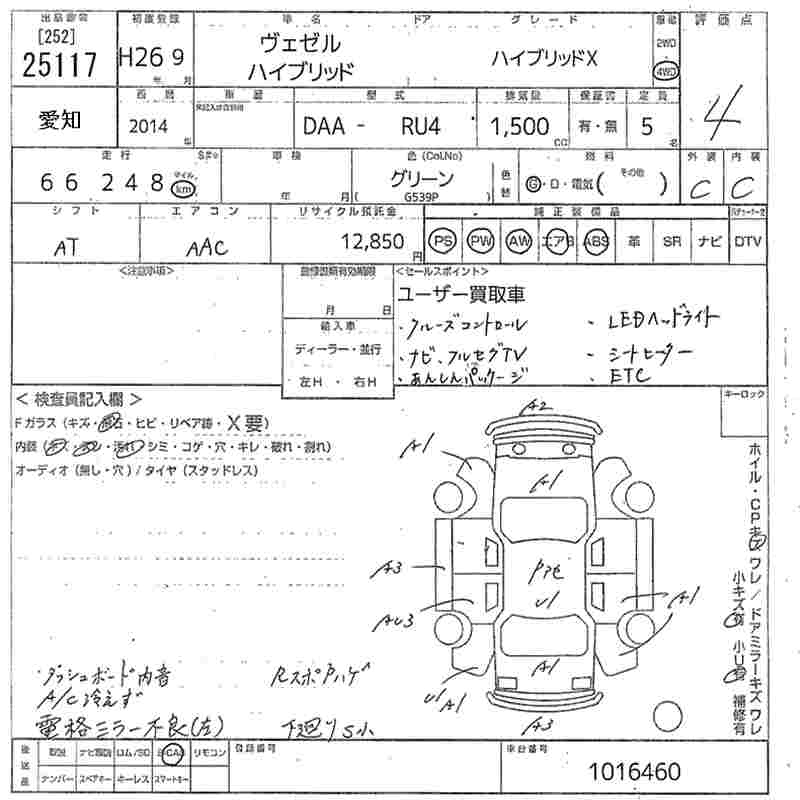 出品番号 初度登録 車名 ドア グレード 駆動 評価点
[252]
25117 H26 9 年 月 ヴェゼル ハイブリッド ハイブリッドX 2WD 4WD 4
愛知 西暦 型式 排気量 保証書 定員
2014 年 DAA - RU4 1,500 CC 有・無 5 名
走行 車検 色(Col.No) 色替 燃料 外装 内装
66 248 マイル km 年 月 グリーン ( G539P ) G・D・電気( その他 ) C C
シフト エアコン リサイクル預託金 純正装備品
AT AAC 12,850 円 PS PW AW エアB ABS 革 SR ナビ DTV
<注意事項> <セールスポイント>
月 日 ユーザー買取車
輸入車 ・クルーズコントロール ・LEDヘッドライト
ディーラー・並行 ・ナビ、フルセグTV ・シートヒーター
左H・右H ・あんしんパッケージ ・ETC
<検査員記入欄> キーロック
Fガラス(キズ・飛石・ヒビ・リペア跡・X要)
内装( シミ・コゲ・穴・キレ・破れ・割れ)
オーディオ(無し・穴)/タイヤ(スタッドレス)
A2
A1 A1
A3 U1 A1
AU3
A1
U1 A1
A3
ホイル・CPキズ ワレ/ドアミラーキズ ワレ
小キズ有 小U有 補修有
・ダッシュボード内音 Rスポアハゲ
A/C冷えず
電格ミラー不良(左) 下廻りS小
後送品 取説 ナビ取説 ロム/SD B-CAS リモコン 登録番号 車台番号
ナンバー スペアキー キーレス スマートキー 1016460